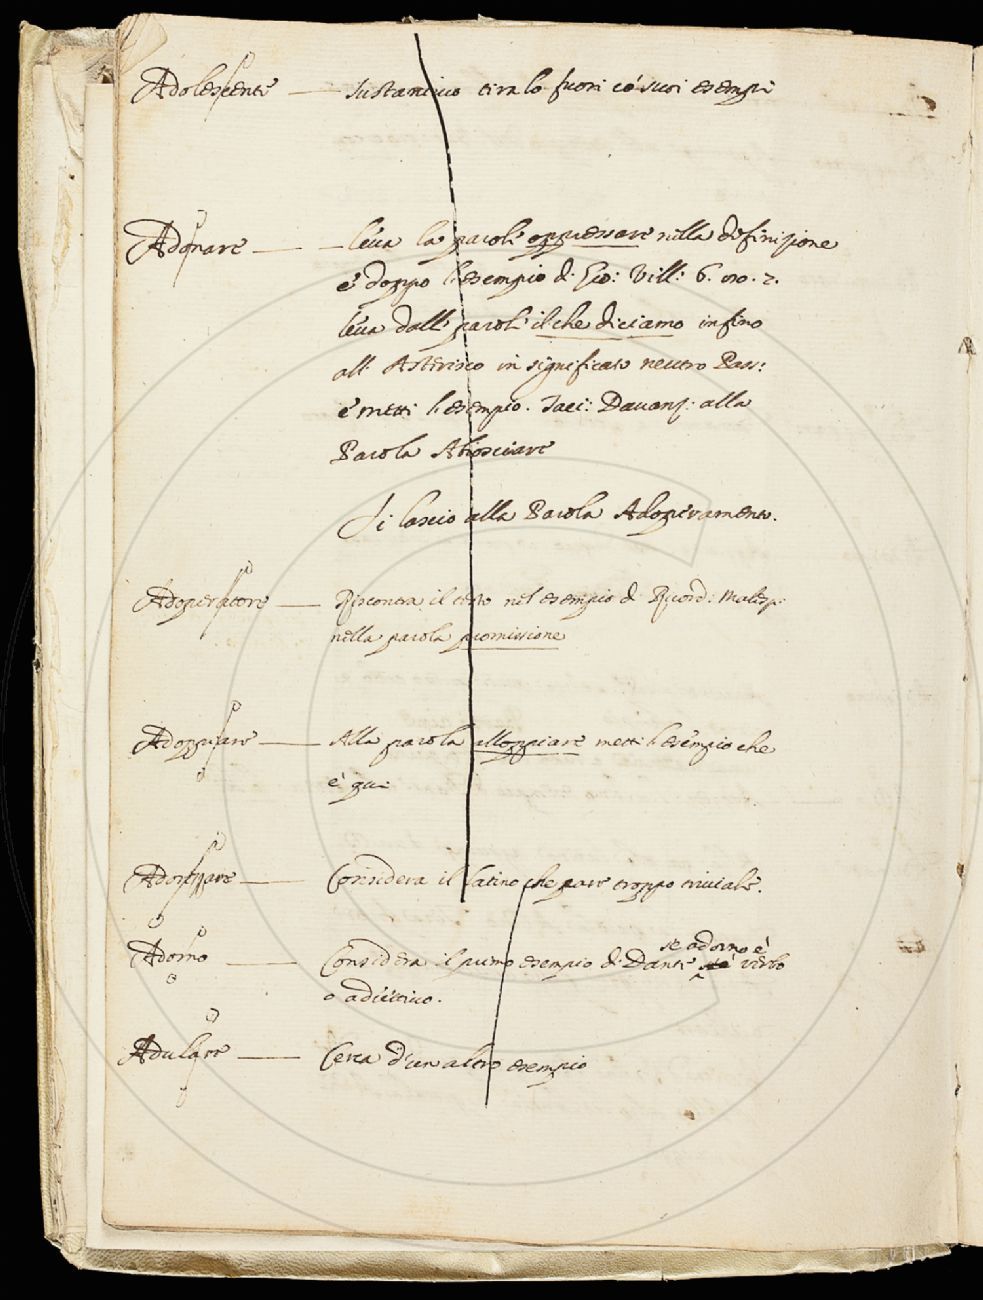 Adolescente — sustantivo tiralo fuori có suoi esempi
Adonare — — leva la parola oppressare nella definizione
e doppo l'esempio di Gio: Vill: 6. 2.
leva dalle parole il che diciamo infino
all: Asterisco in significato neutro Pass:
e metti l'esempio. Tac: Davanz: alla
Parola Abiosciare
Si lascio alla Parola Adoperamento.
Adoperatore — Riscontra il testo nel esempio di Ricord: Malesp:
nella parola promissione
Adoppiare — Alla parola alloppiare metti l'esempio che
è qui
Adoreppare — Considera il latino che pare troppo triviale.
Adorno — Considera il primo esempio di Dante se adorno è verbo
o adiettivo.
Adulare — Cerca d'un altro esempio